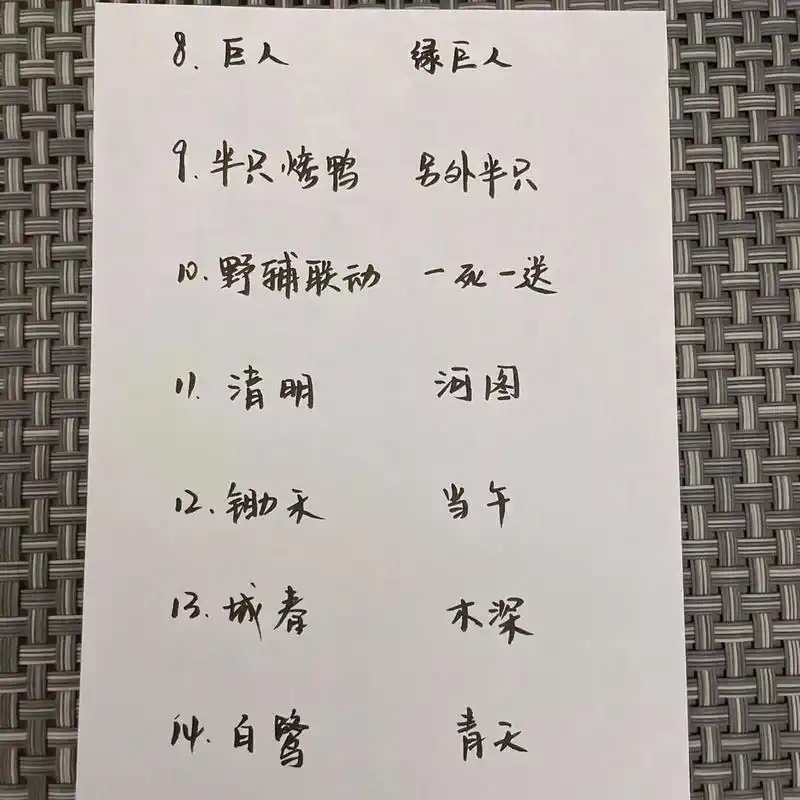 8. 巨人 绿巨人
9. 半只烤鸭 另外半只
10. 野辅联动 一死一送
11. 清明 河图
12. 锄禾 当午
13. 城春 木深
14. 白鹭 青天